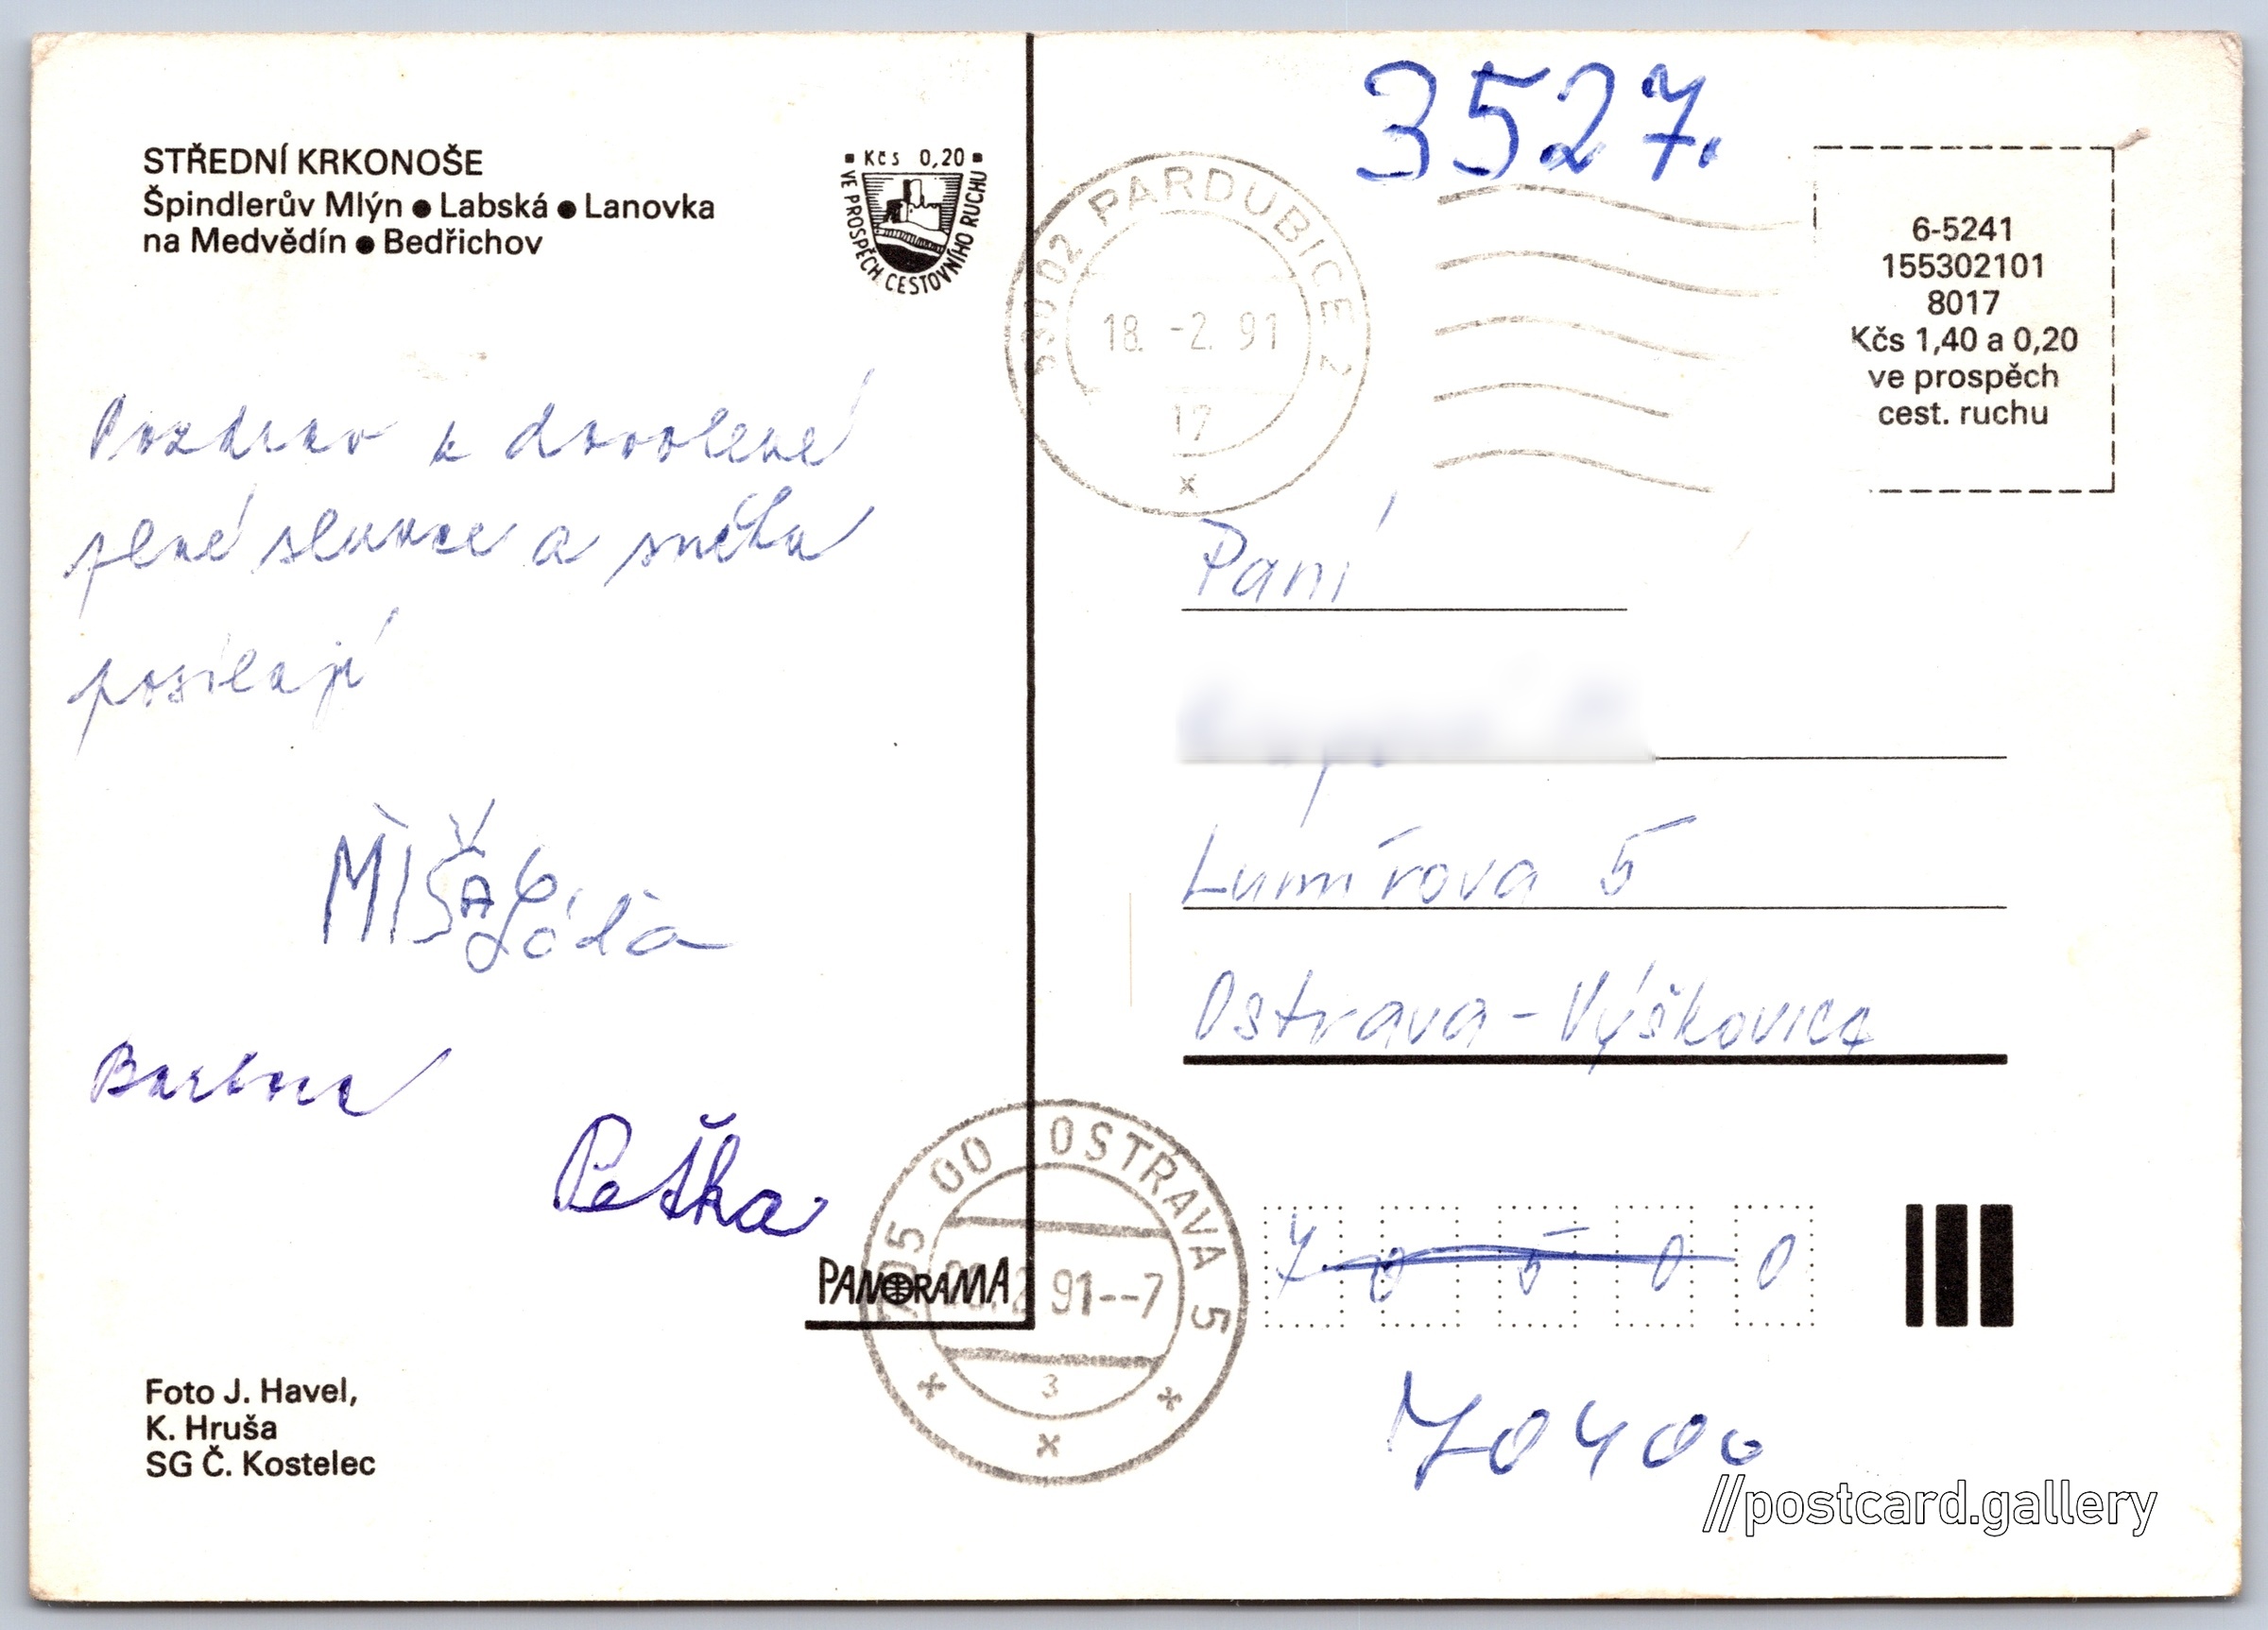 STŘEDNÍ KRKONOŠE
Špindlerův Mlýn ● Labská ● Lanovka
na Medvědín ● Bedřichov
■ Kčs 0,20 ■
VE PROSPĚCH CESTOVNÍHO RUCHU
Pozdrav z dovolené
plné slunce a sněhu
posílají
MÍŠA
Peťka
PANORAMA
Foto J. Havel,
K. Hruša
SG Č. Kostelec
3527.
530 02 PARDUBICE 2
18. -2. 91
17
x
6-5241
155302101
8017
Kčs 1,40 a 0,20
ve prospěch
cest. ruchu
Paní
Lumírova 5
Ostrava-Výškovice
705 00 OSTRAVA 5
2 91--7
3
x
7 0 5 0 0
70400
//postcard.gallery